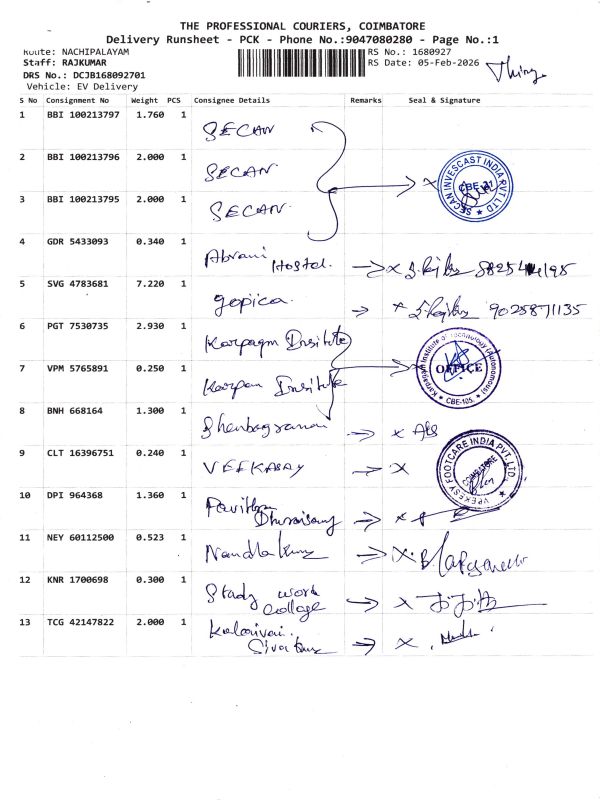 THE PROFESSIONAL COURIERS, COIMBATORE
Delivery Runsheet - PCK - Phone No.:9047080280 - Page No.:1
Route: NACHIPALAYAM RS No.: 1680927
Staff: RAJKUMAR RS Date: 05-Feb-2026
DRS No.: DCJB168092701
Vehicle: EV Delivery
S No Consignment No Weight PCS Consignee Details Remarks Seal & Signature
1 BBI 100213797 1.760 1 SECAN
2 BBI 100213796 2.000 1 SECAN
SECAN INVESCAST INDIA PVT LTD
3 BBI 100213795 2.000 1 SECAN
4 GDR 5433093 0.340 1 Hostel
5 SVG 4783681 7.220 1 gopica 9025871135
6 PGT 7530735 2.930 1 Karpagm Insitute
Karpagam Institute of Technology (Autonomous) OFFICE CBE-105.
7 VPM 5765891 0.250 1 Karpam Insitute
8 BNH 668164 1.300 1
9 CLT 16396751 0.240 1 VEEKASAY
VPEKESY FOOTCARE INDIA PVT. LTD. COIMBATORE
10 DPI 964368 1.360 1 Pavithra
11 NEY 60112500 0.523 1 Nandhakumar
12 KNR 1700698 0.300 1 Study work
college
13 TCG 42147822 2.000 1 Kalaivai